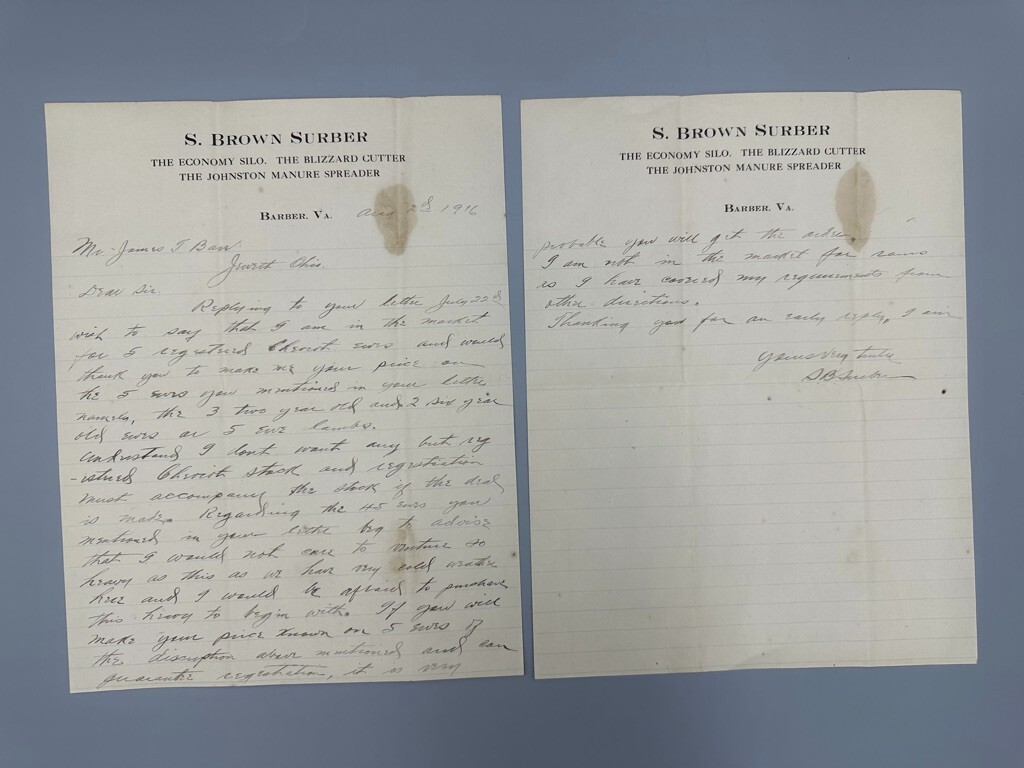 S. BROWN SURBER
THE ECONOMY SILO. THE BLIZZARD CUTTER
THE JOHNSTON MANURE SPREADER
BARBER, VA. Aug 2d 1916
Mr. James T Barr
Jewett Ohio.
Dear Sir.
Replying to your letter July 22d
wish to say that I am in the market
for 5 registered Cheviot ewes and would
thank you to make me your price on
the 5 ewes you mentioned in your letter
namely, the 3 two year old and 2 six year
old ewes or 5 ewe lambs.
Understand I dont want any but reg
-istered Cheviot stock and registration
must accompany the stock if the deal
is made. Regarding the 45 ewes you
mentioned in your letter beg to advise
that I would not care to venture so
heavy as this as we have very cold weather
here and I would be afraid to purchase
this heavy to begin with. If you will
make your price known on 5 ewes of
the discription above mentioned and can
guarantee registration, it is very
S. BROWN SURBER
THE ECONOMY SILO. THE BLIZZARD CUTTER
THE JOHNSTON MANURE SPREADER
BARBER, VA.
probable you will get the order.
I am not in the market for rams
as I have covered my requirements from
other directions.
Thanking you for an early reply, I am
Yours Very truly
S B Surber